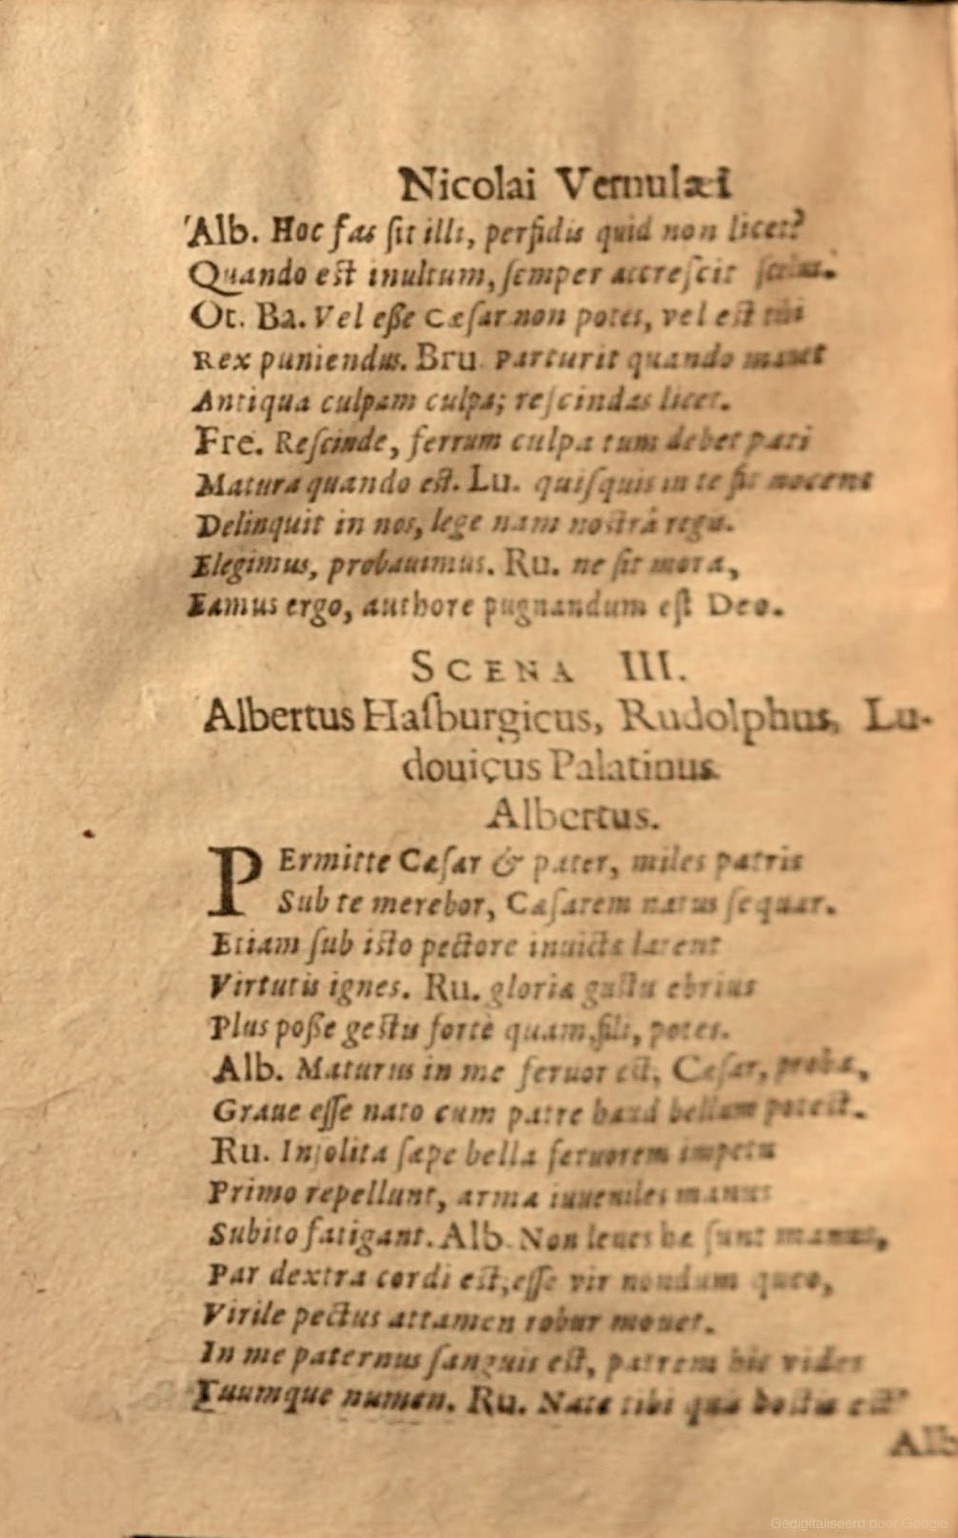 Nicolai Vernulæi
Alb. Hoc fas sit illi, perfidis quid non licet?
Quando est inultum, semper accrescit scelus.
Ot. Ba. Vel esse Cæsar non potes, vel est tibi
Rex puniendus. Bru. Parturit quando manet
Antiqua culpam culpa; rescindas licet.
Fre. Rescinde, ferrum culpa tum debet pati
Matura quando est. Lu. quisquis in te sit nocens
Delinquit in nos, lege nam nostrâ regis.
Elegimus, probauimus. Ru. ne sit mora,
Eamus ergo, authore pugnandum est Deo.
SCENA III.
Albertus Hasburgicus, Rudolphus, Lu-
douicus Palatinus.
Albertus.
PErmitte Cæsar & pater, miles patris
Sub te merebor, Cæsarem natus sequar.
Etiam sub isto pectore inuicta latent
Virtutis ignes. Ru. gloriæ gustu ebrius
Plus posse gestis fortè quam, fili, potes.
Alb. Maturus in me feruor est, Cæsar, proba,
Graue esse nato cum patre haud bellum potest.
Ru. Insolita sæpe bella feruorem impetu
Primo repellunt, arma iuueniles manus
Subito fatigant. Alb. Non leues hæ sunt manus,
Par dextra cordi est, esse vir nondum queo,
Virile pectus attamen robur mouet.
In me paternus sanguis est, patrem hic vides
Tuumque numen. Ru. Nate tibi quis hostis est?
Alb.
Gedigitaliseerd door Google